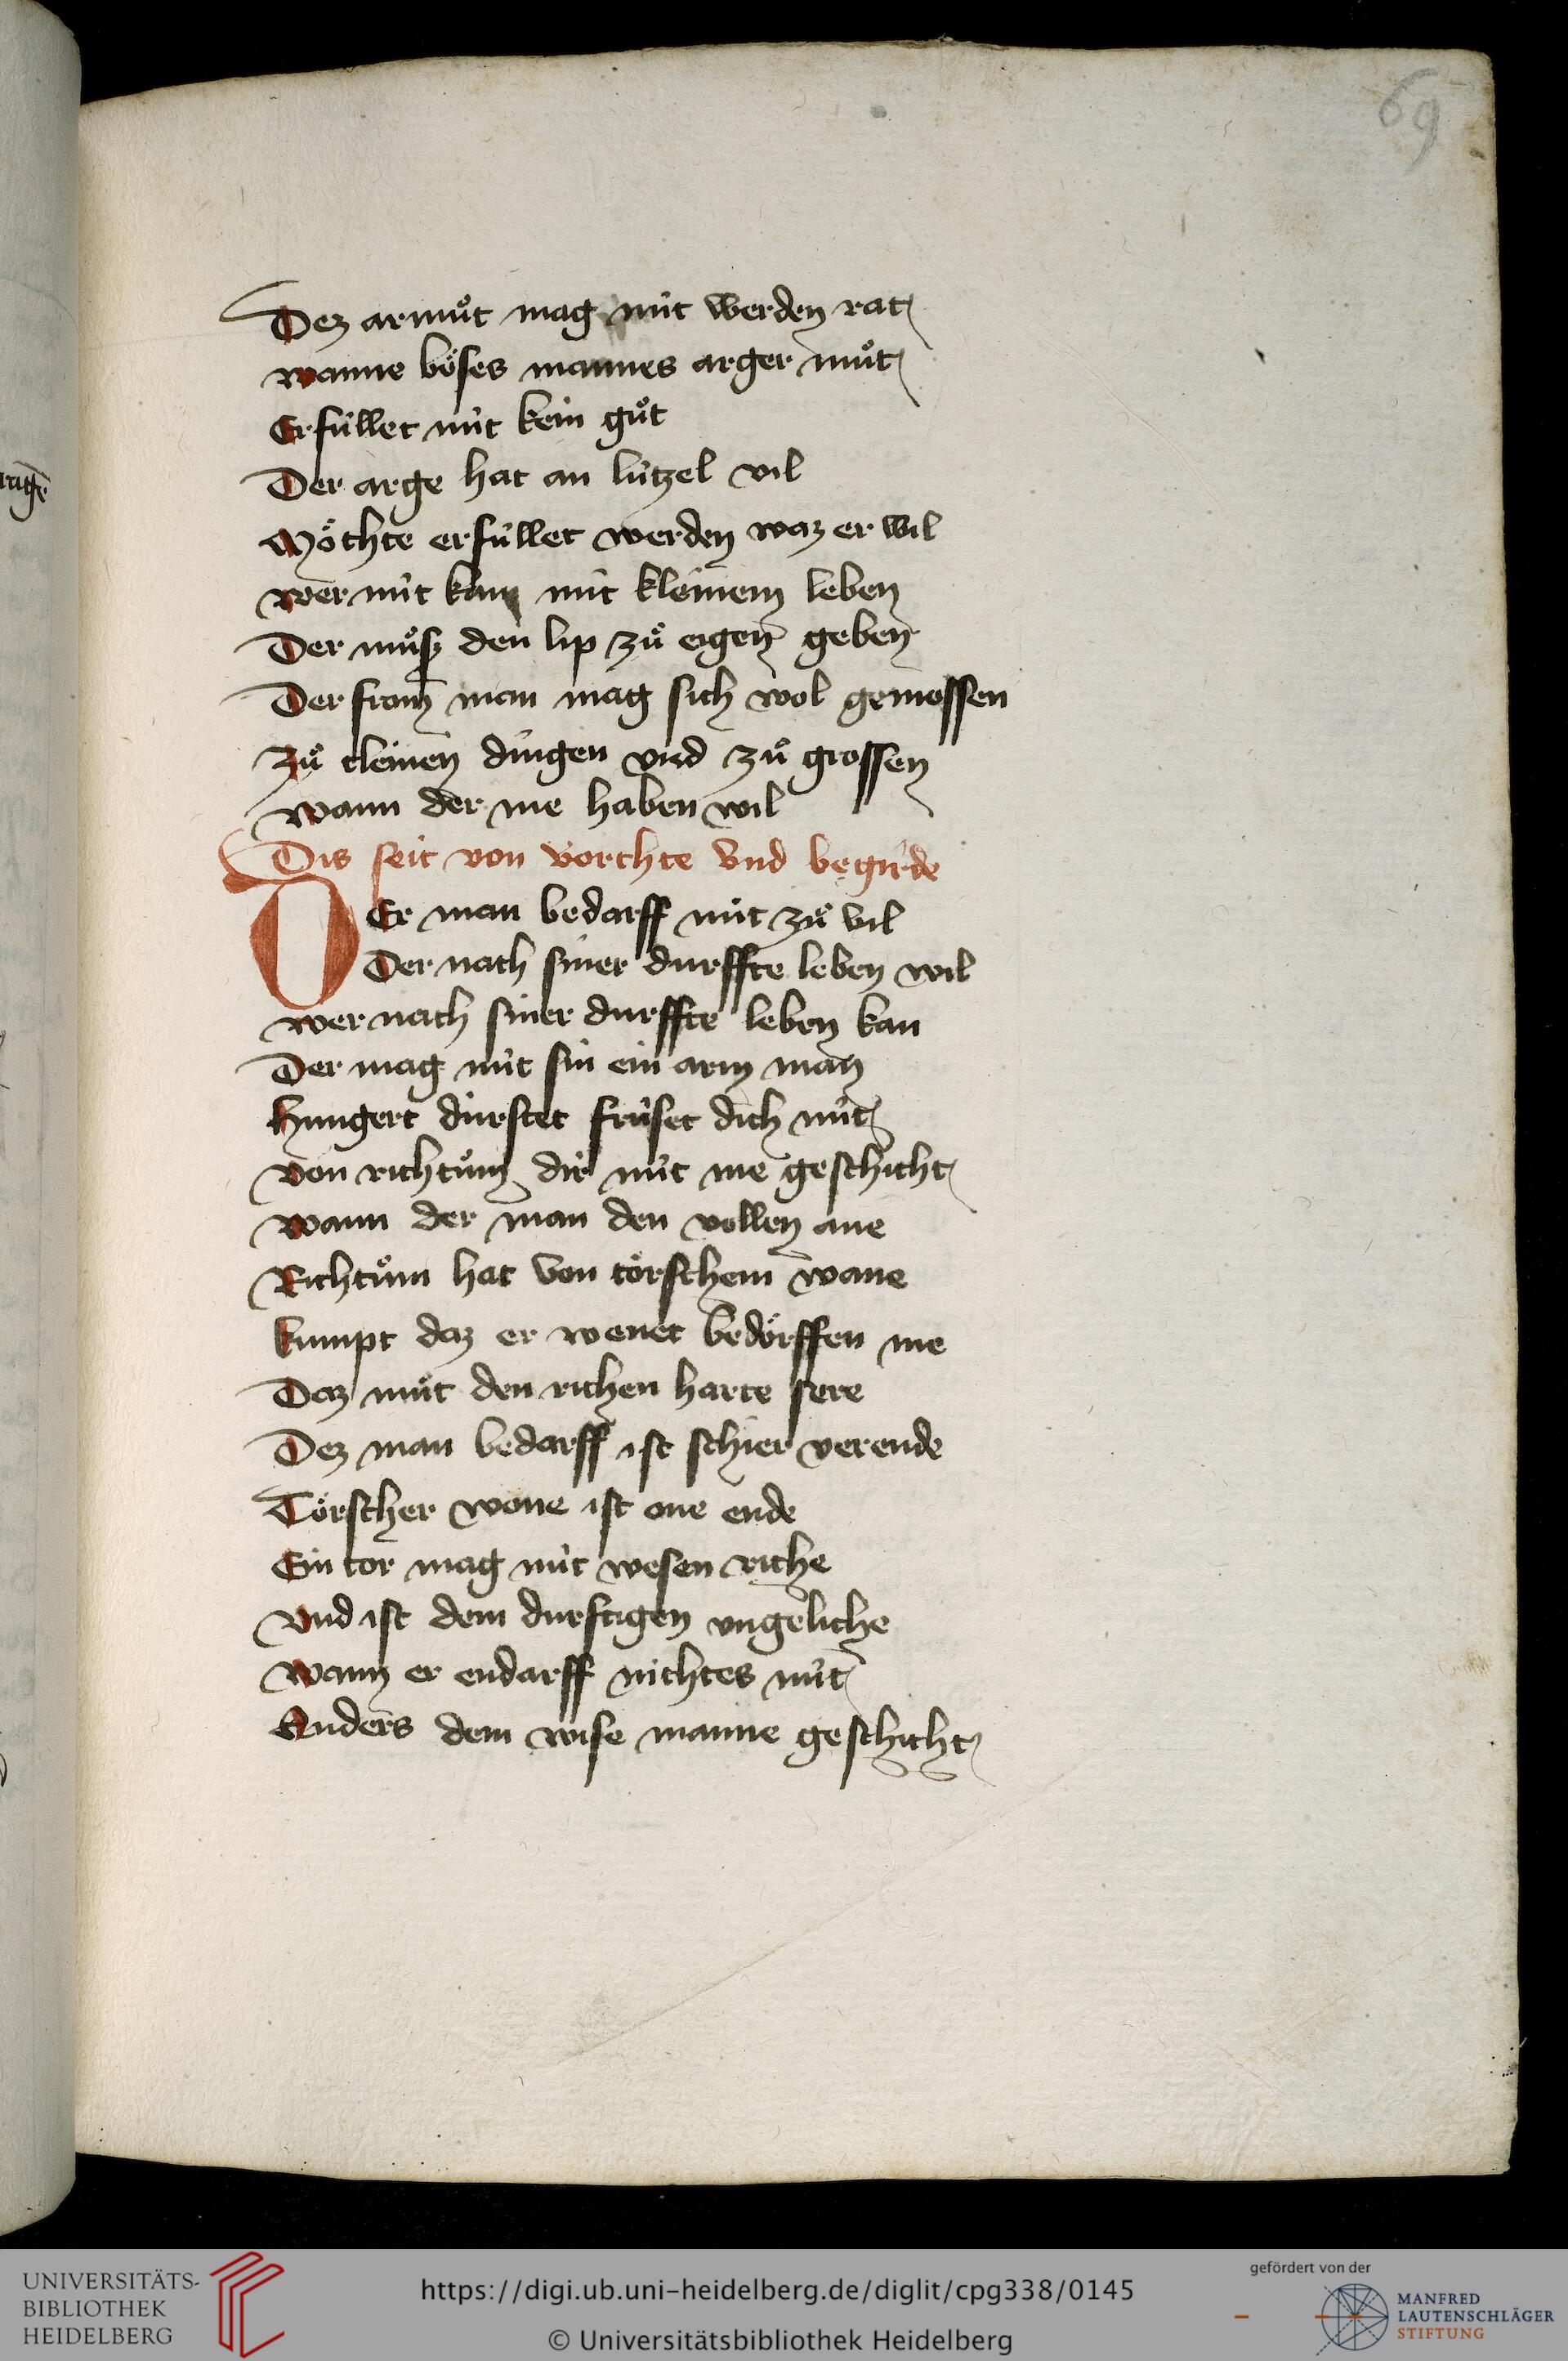 69
Dez armuͦt mag nuͤt werden rat
wanne boͤses mannes arger muͦt
Erfuͤllet nuͤt kein guͦt
Der arge hat an luͤtzel vil
Moͤchte erfuͤllet werden waz er wil
wer nuͤt kan mit kleinem leben
Der muͦß den lip zuͦ eigen geben
Der from man mag sich wol gemossen
zuͦ cleinen dingen vnd zuͦ grossen
wann der me haben wil
Dis seit von vorchte vnd begirde
DEr man bedarff nuͤt zuͦ vil
Der nach siner durffte leben wil
wer nach siner durffte leben kan
Der mag nuͤt sin ein arm man
Hungert duͤrstet fruͤset dich nuͤt
von richtuͦm dir nuͤt me geschicht
wann der man den vollen ane
Richtuͦm hat von toͤrschem wane
kumpt daz er wenet bedoͤrffen me
Daz muͤt den richen harte sere
Dez man bedarff ist schier verende
Toͤrscher wone ist one ende
Ein tor mag nuͤt wesen riche
vnd ist dem durftigen vngeliche
wann er endarff nichtes nuͤt
Anders dem wise manne geschicht
UNIVERSITÄTS-
BIBLIOTHEK
HEIDELBERG
https://digi.ub.uni-heidelberg.de/diglit/cpg338/0145
© Universitätsbibliothek Heidelberg
gefördert von der
MANFRED
LAUTENSCHLÄGER
STIFTUNG